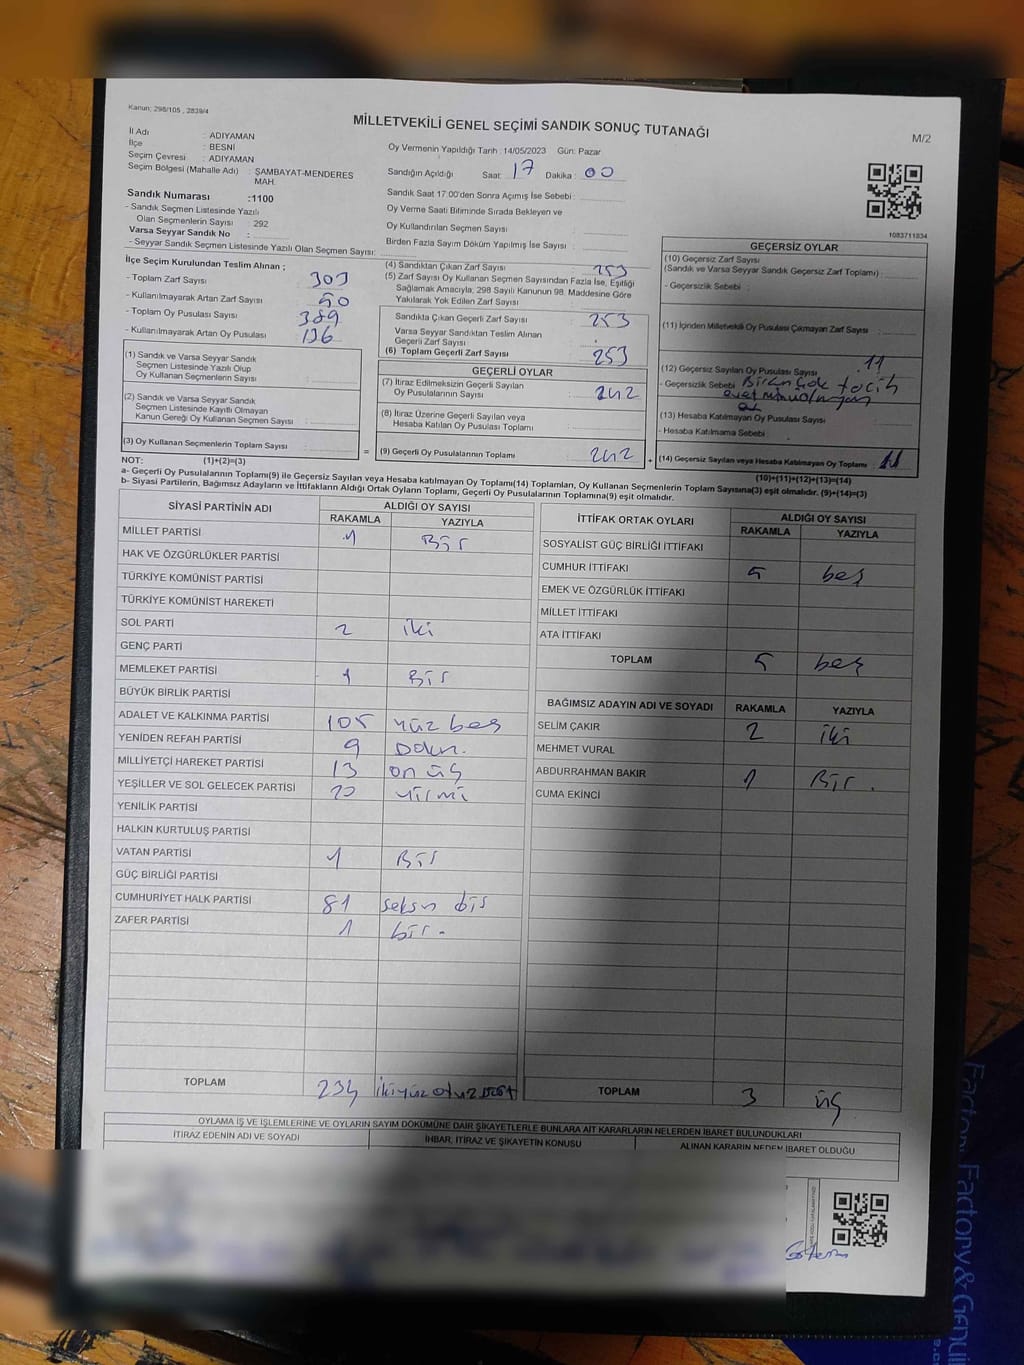 Kanun; 298/105 , 2839/4
MİLLETVEKİLİ GENEL SEÇİMİ SANDIK SONUÇ TUTANAĞI
M/2
İl Adı : ADIYAMAN
İlçe : BESNİ
Seçim Çevresi : ADIYAMAN
Seçim Bölgesi (Mahalle Adı) : ŞAMBAYAT-MENDERES MAH.
Sandık Numarası :1100
- Sandık Seçmen Listesinde Yazılı
Olan Seçmenlerin Sayısı : 292
Varsa Seyyar Sandık No :
- Seyyar Sandık Seçmen Listesinde Yazılı Olan Seçmen Sayısı:
Oy Vermenin Yapıldığı Tarih : 14/05/2023 Gün: Pazar
Sandığın Açıldığı Saat: 17 Dakika : 00
Sandık Saat 17:00'den Sonra Açımış İse Sebebi :
Oy Verme Saati Bitiminde Sırada Bekleyen ve
Oy Kullandırılan Seçmen Sayısı :
Birden Fazla Sayım Döküm Yapılmış İse Sayısı :
1083711834
İlçe Seçim Kurulundan Teslim Alınan ;
- Toplam Zarf Sayısı : 303
- Kullanılmayarak Artan Zarf Sayısı : 50
- Toplam Oy Pusulası Sayısı : 389
- Kullanılmayarak Artan Oy Pusulası : 136
(1) Sandık ve Varsa Seyyar Sandık
Seçmen Listesinde Yazılı Olup
Oy Kullanan Seçmenlerin Sayısı :
(2) Sandık ve Varsa Seyyar Sandık
Seçmen Listesinde Kayıtlı Olmayan
Kanun Gereği Oy Kullanan Seçmen Sayısı :
(3) Oy Kullanan Seçmenlerin Toplam Sayısı :
NOT: (1)+(2)=(3)
(4) Sandıktan Çıkan Zarf Sayısı : 253
(5) Zarf Sayısı Oy Kullanan Seçmen Sayısından Fazla İse, Eşitliği
Sağlamak Amacıyla, 298 Sayılı Kanunun 98. Maddesine Göre
Yakılarak Yok Edilen Zarf Sayısı :
Sandıkta Çıkan Geçerli Zarf Sayısı : 253
Varsa Seyyar Sandıktan Teslim Alınan
Geçerli Zarf Sayısı :
(6) Toplam Geçerli Zarf Sayısı : 253
GEÇERLİ OYLAR
(7) İtiraz Edilmeksizin Geçerli Sayılan
Oy Pusulasının Sayısı : 242
(8) İtiraz Üzerine Geçerli Sayılan veya
Hesaba Katılan Oy Pusulası Toplamı :
= (9) Geçerli Oy Pusulalarının Toplamı : 242 +
GEÇERSİZ OYLAR
(10) Geçersiz Zarf Sayısı
(Sandık ve Varsa Seyyar Sandık Geçersiz Zarf Toplamı) :
- Geçersizlik Sebebi :
(11) İçinden Milletvekili Oy Pusulası Çıkmayan Zarf Sayısı :
(12) Geçersiz Sayılan Oy Pusulası Sayısı : 11
- Geçersizlik Sebebi : Birden çok tercih
evet
(13) Hesaba Katılmayan Oy Pusulası Sayısı :
- Hesaba Katılmama Sebebi :
(14) Geçersiz Sayılan veya Hesaba Katılmayan Oy Toplamı : 11
(10)+(11)+(12)+(13)=(14)
a- Geçerli Oy Pusulalarının Toplamı(9) ile Geçersiz Sayılan veya Hesaba katılmayan Oy Toplamı(14) Toplamları, Oy Kullanan Seçmenlerin Toplam Sayısına(3) eşit olmalıdır. (9)+(14)=(3)
b- Siyasi Partilerin, Bağımsız Adayların ve İttifakların Aldığı Ortak Oyların Toplamı, Geçerli Oy Pusulalarının Toplamına(9) eşit olmalıdır.
SİYASİ PARTİNİN ADI ALDIĞI OY SAYISI
RAKAMLA YAZIYLA
MİLLET PARTİSİ 1 Bir
HAK VE ÖZGÜRLÜKLER PARTİSİ
TÜRKİYE KOMÜNİST PARTİSİ
TÜRKİYE KOMÜNİST HAREKETİ
SOL PARTİ 2 iki
GENÇ PARTİ
MEMLEKET PARTİSİ 1 Bir
BÜYÜK BİRLİK PARTİSİ
ADALET VE KALKINMA PARTİSİ 105 yüz beş
YENİDEN REFAH PARTİSİ 9 Dokuz
MİLLİYETÇİ HAREKET PARTİSİ 13 on üç
YEŞİLLER VE SOL GELECEK PARTİSİ 20 yirmi
YENİLİK PARTİSİ
HALKIN KURTULUŞ PARTİSİ
VATAN PARTİSİ 1 Bir
GÜÇ BİRLİĞİ PARTİSİ
CUMHURİYET HALK PARTİSİ 81 seksn bir
ZAFER PARTİSİ 1 bir.
TOPLAM 234 ikiyüz otuz dört
İTTİFAK ORTAK OYLARI ALDIĞI OY SAYISI
RAKAMLA YAZIYLA
SOSYALİST GÜÇ BİRLİĞİ İTTİFAKI
CUMHUR İTTİFAKI 5 beş
EMEK VE ÖZGÜRLÜK İTTİFAKI
MİLLET İTTİFAKI
ATA İTTİFAKI
TOPLAM 5 beş
BAĞIMSIZ ADAYIN ADI VE SOYADI RAKAMLA YAZIYLA
SELİM ÇAKIR 2 iki
MEHMET VURAL
ABDURRAHMAN BAKIR 1 Bir .
CUMA EKİNCİ
TOPLAM 3 üç
OYLAMA İŞ VE İŞLEMLERİNE VE OYLARIN SAYIM DÖKÜMÜNE DAİR ŞİKAYETLERLE BUNLARA AİT KARARLARIN NELERDEN İBARET BULUNDUKLARI
İTİRAZ EDENİN ADI VE SOYADI İHBAR, İTİRAZ VE ŞİKAYETİN KONUSU ALINAN KARARIN NEDEN İBARET OLDUĞU
Factory & Genuine